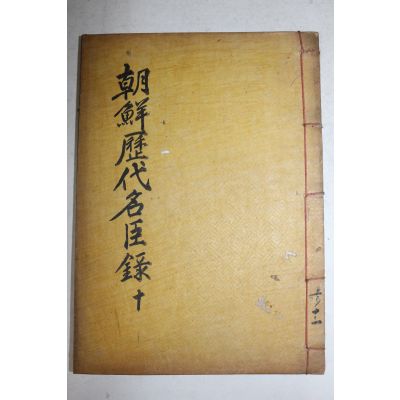 朝鮮歷代名臣錄 十